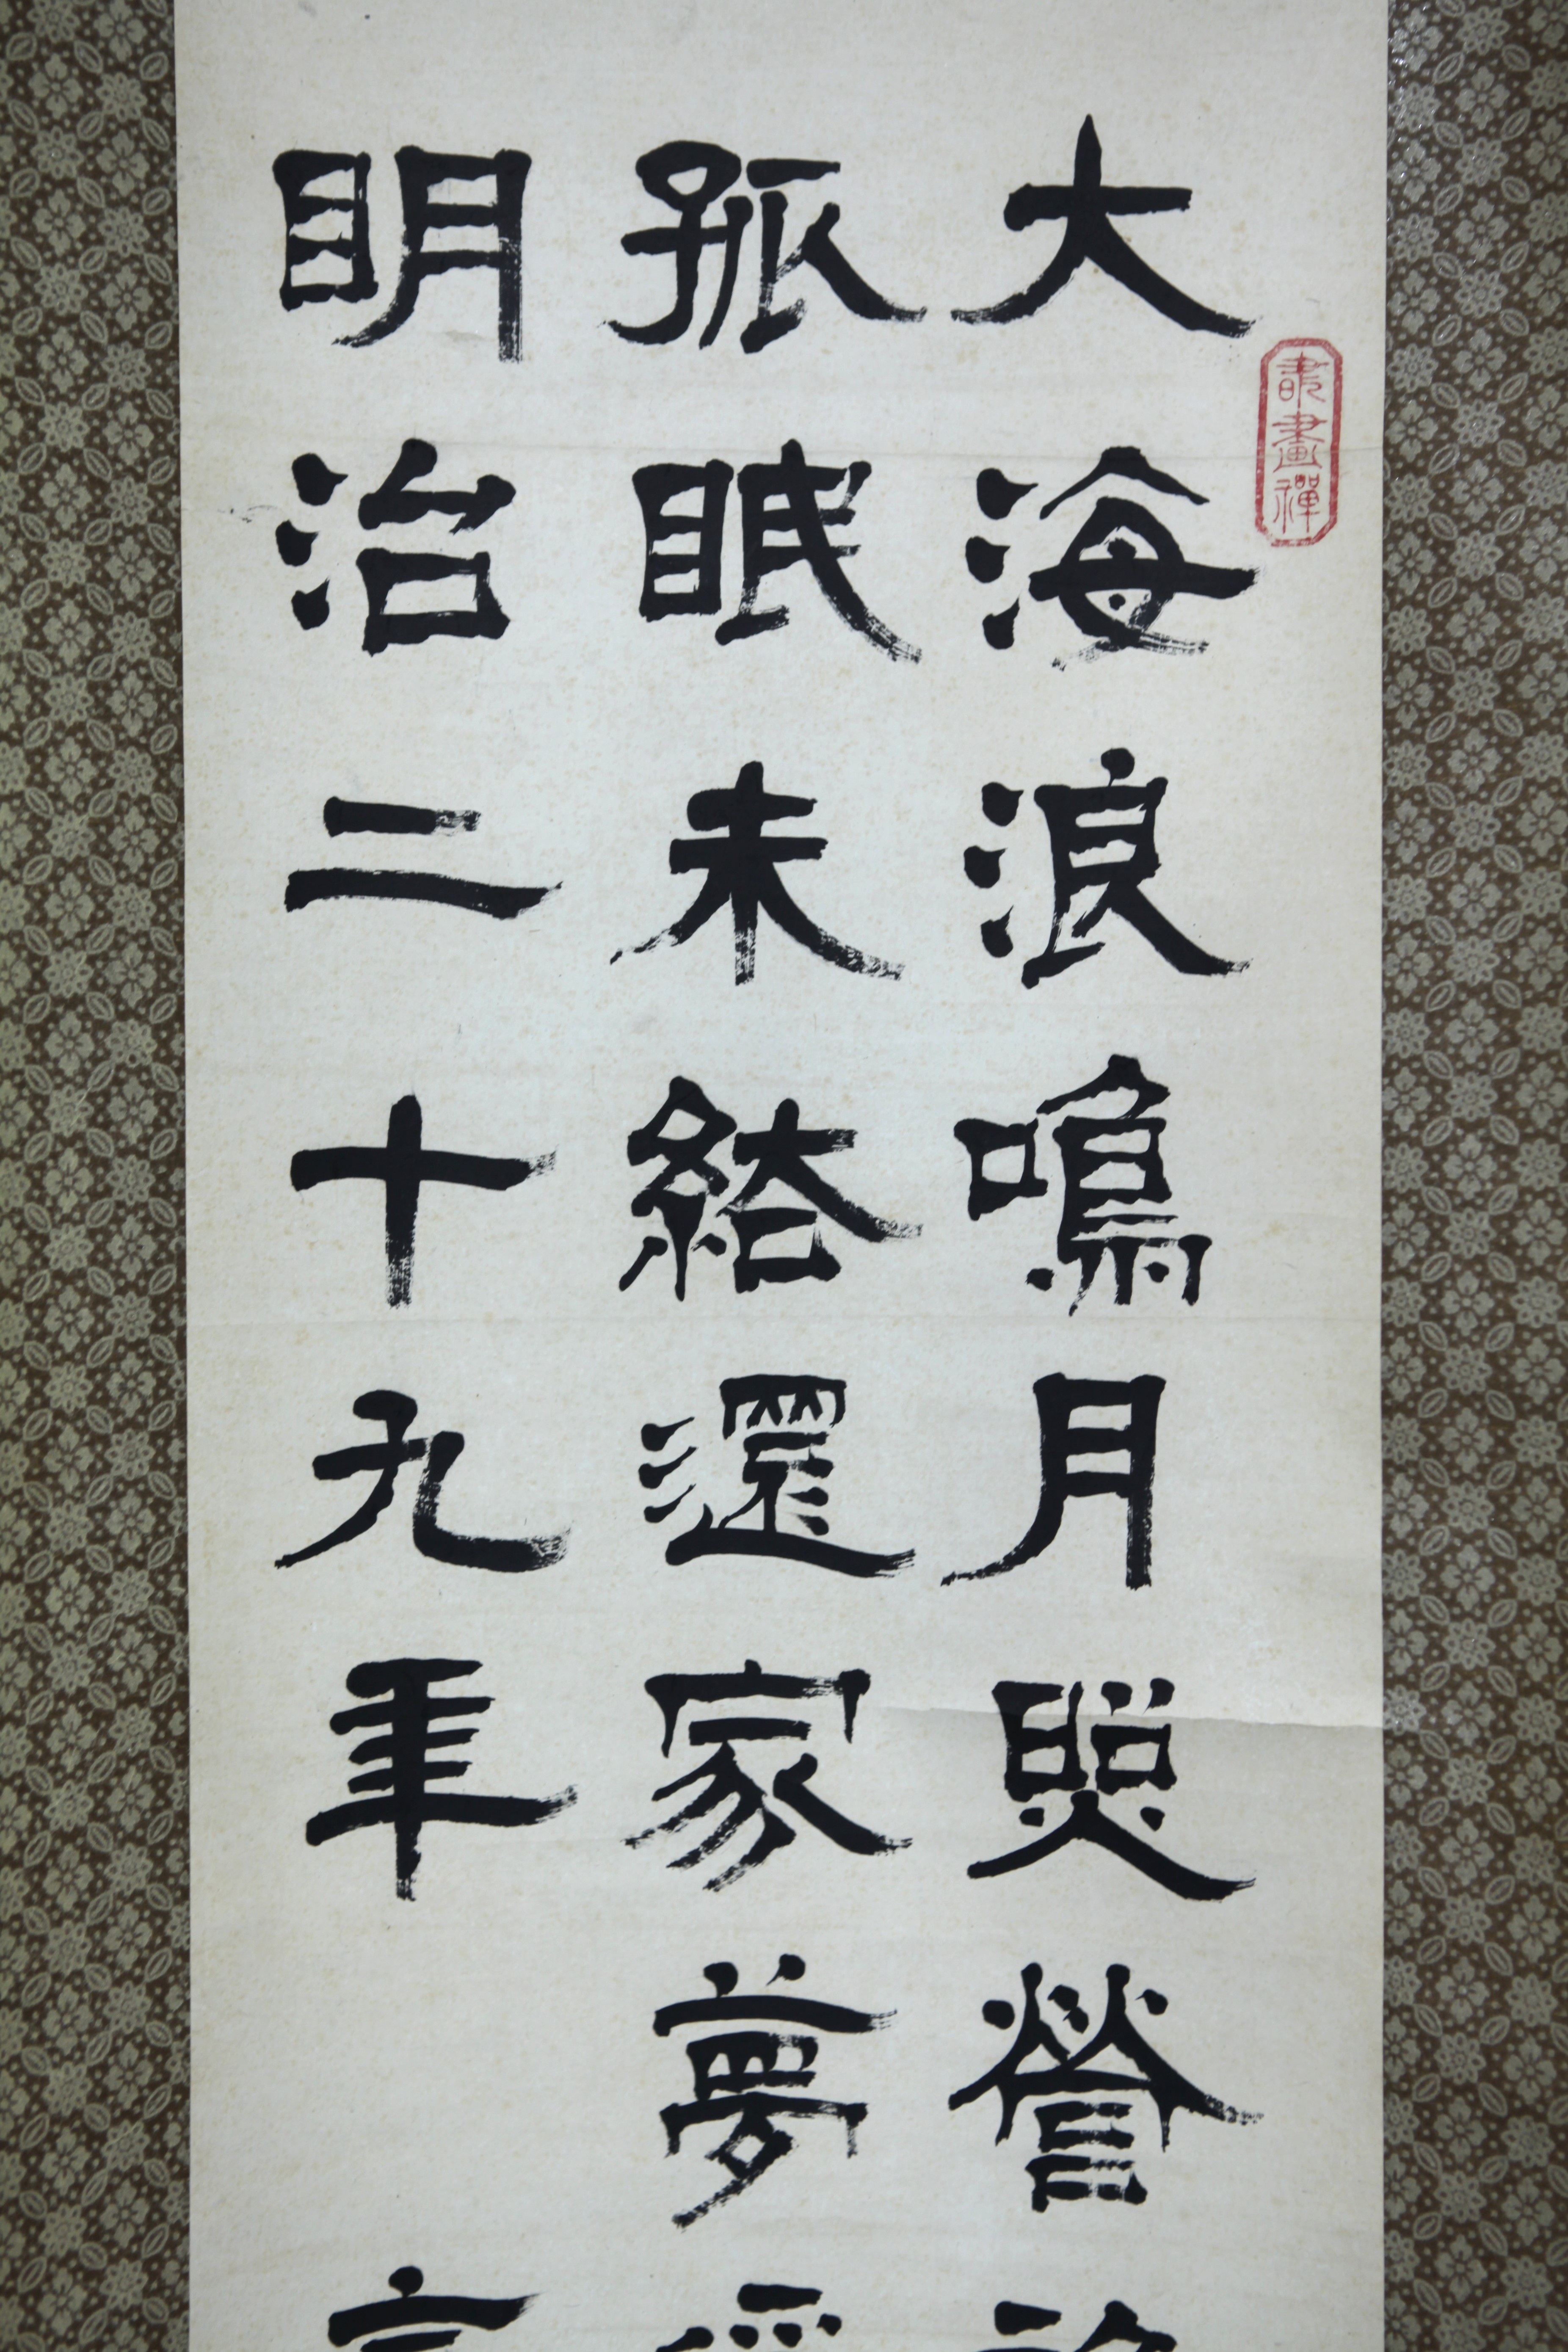 大海浪鳴月照營
孤眠未結還家夢
明治二十九年
畫禪